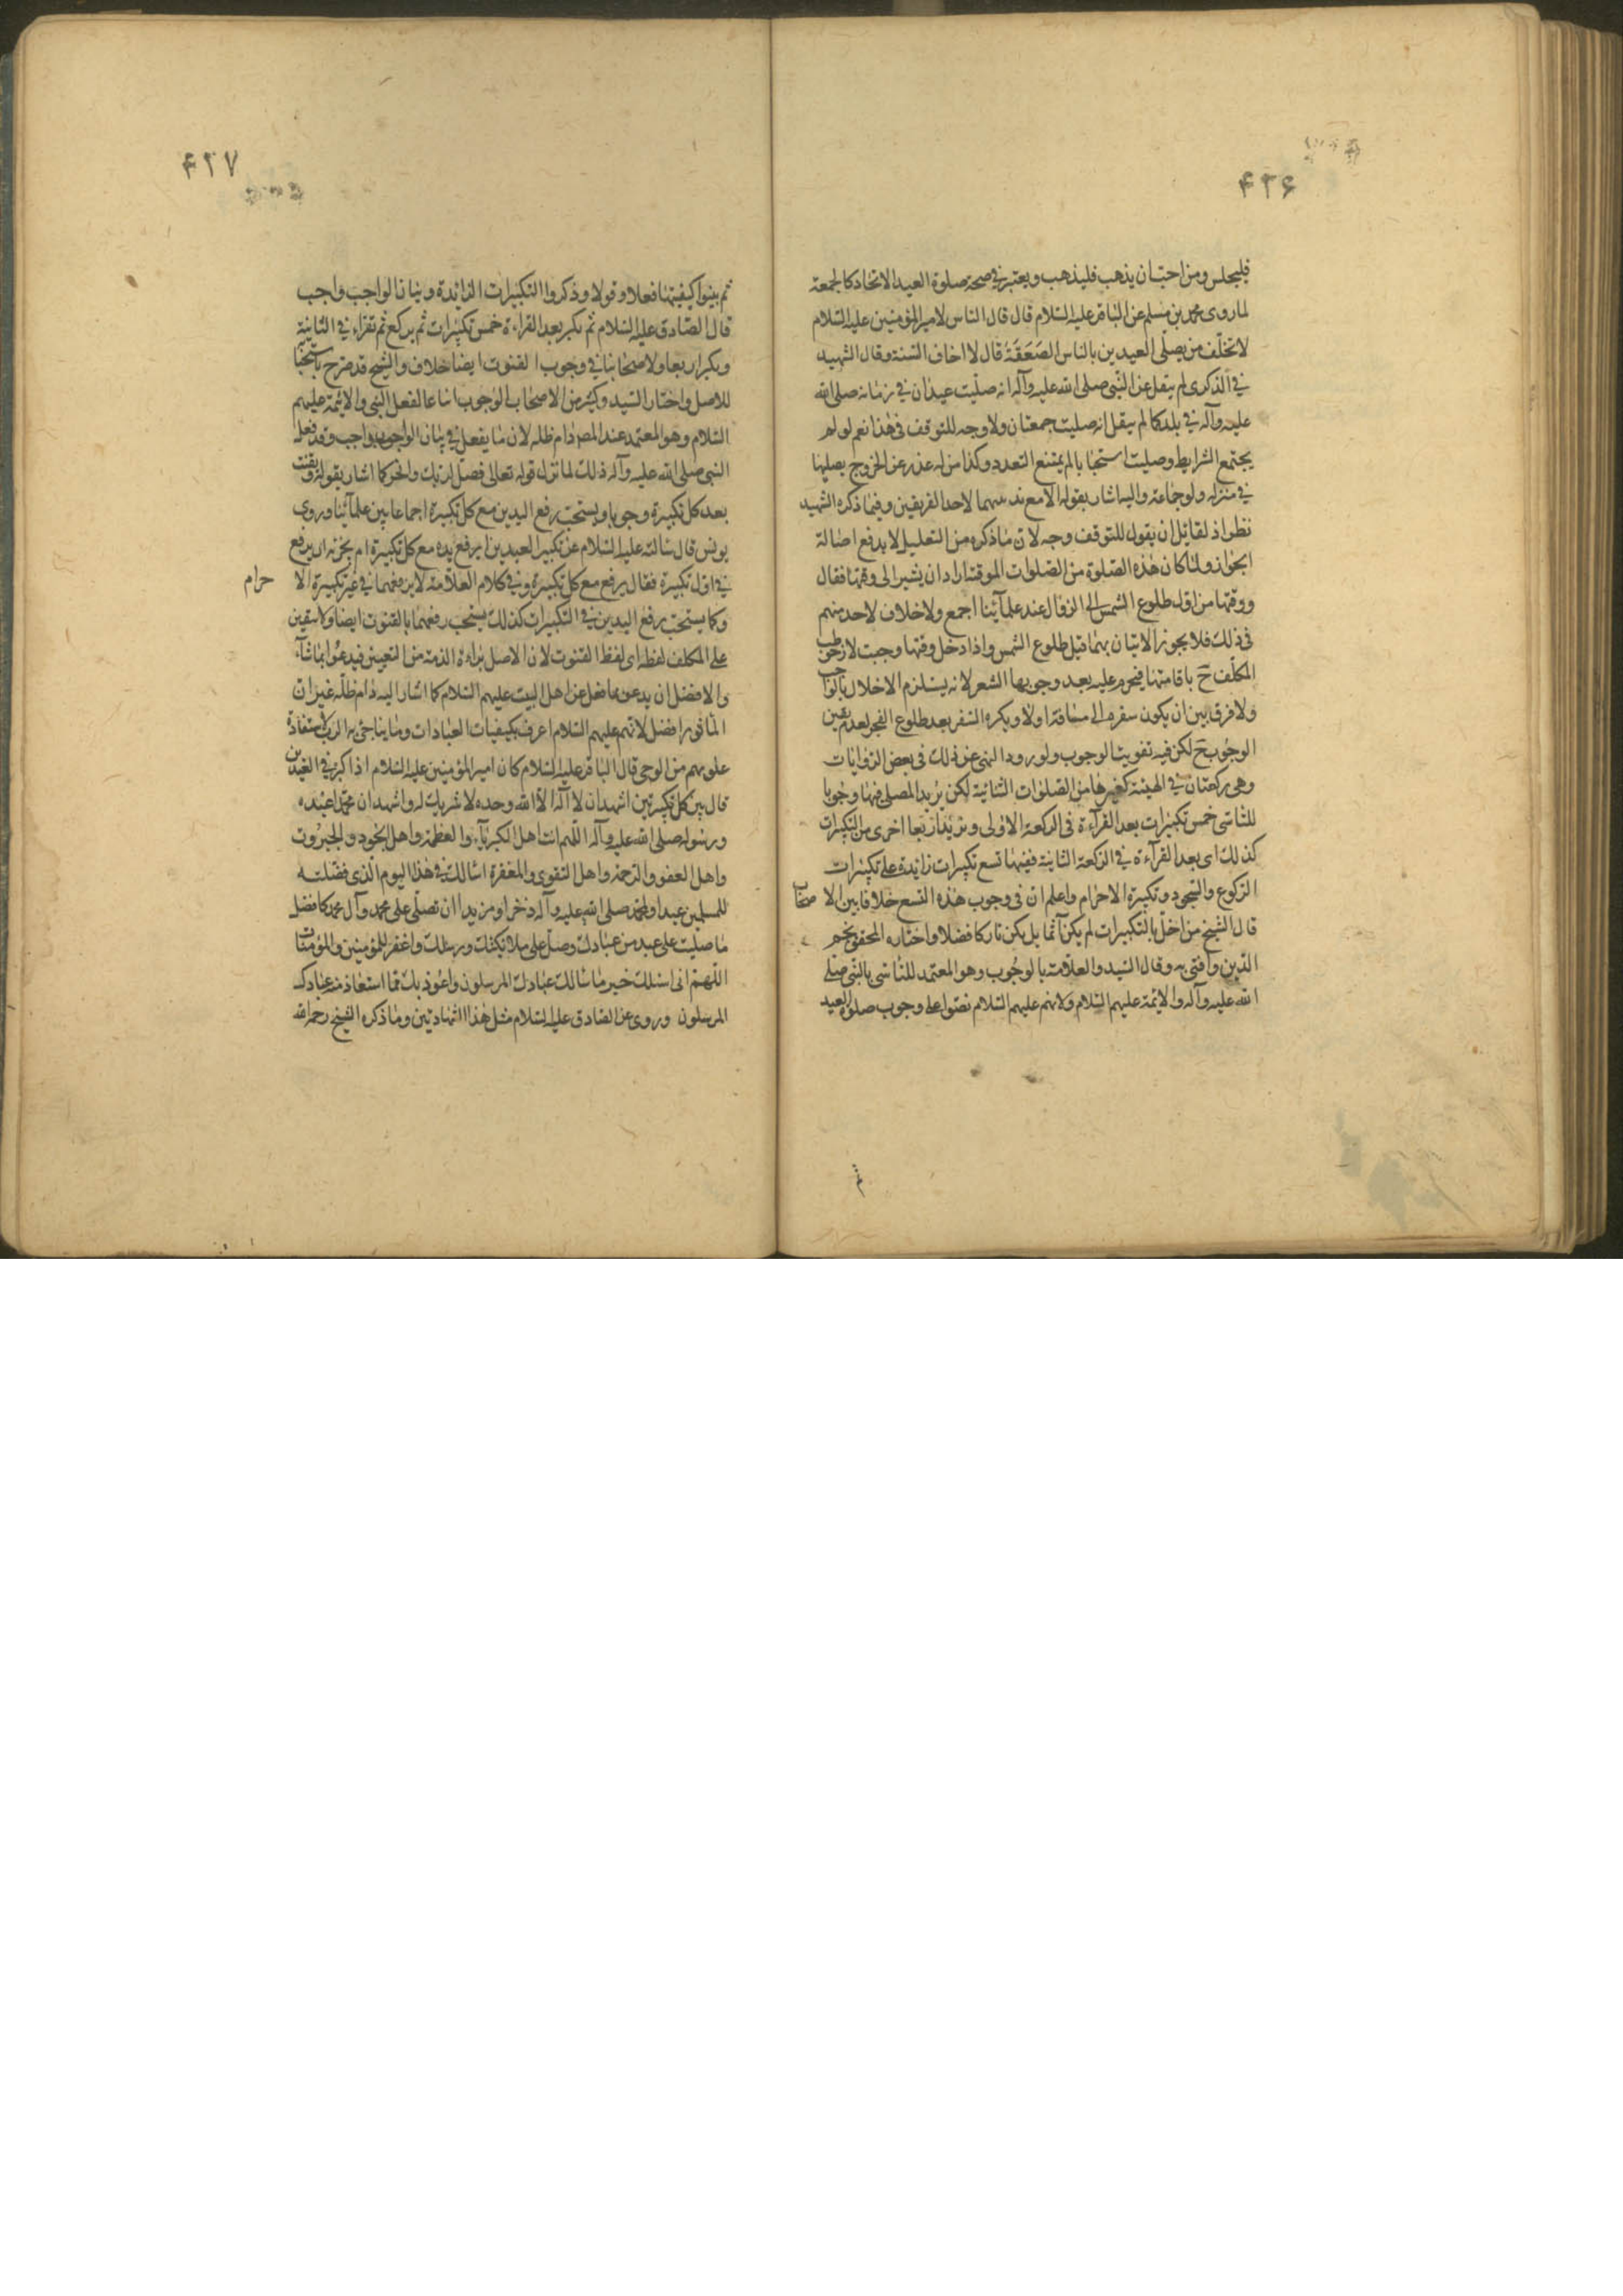 ۴۲۶
فليجلس ومن احب ان يذهب فليذهب ويعتبر في صحة صلوة العيد الاتحاد كالجمعة
لما روى محمد بن مسلم عن الباقر عليه السلام قال قال الناس لامير المؤمنين عليه السلام
لا تخلف من يصلى العيدين بالناس الضعفة قال لا اخاف السنة وقال الشهيد
في الذكرى لم ينقل عن النبي صلى الله عليه وآله انه صليت عيدان في زمانه صلى الله
عليه وآله في بلد كما لم ينقل انه صليت جمعتان ولا وجه للتوقف في هذا نعم لو لم
يجتمع الشرايط وصليت استحبابا لم يمتنع التعدد وكذا من له عذر عن الخروج يصليها
في منزله ولو جماعة واليه اشار بقوله الا مع لاحد الفريقين وفيما ذكره الشهيد
نظر اذ لقائل ان يقول للتوقف وجه لان ما ذكره من التعليل لا يدفع اصالة
الجواز ولما كان هذه الصلوة من الصلوات الموقتة اراد ان يشير الى وقتها فقال
ووقتها من اول طلوع الشمس الى الزوال عند علمآئنا اجمع ولا خلاف لاحد منهم
في ذلك فلا يجوز الاتيان بهما قبل طلوع الشمس واذا دخل وقتها وجبت لان خوطب
المكلف ح باقامتها فيحرم عليه بعد وجوبها السفر لانه يستلزم الاخلال بالواجب
ولا فرق بين ان يكون سفره الى مسافة اولا ويكره السفر بعد طلوع الفجر لعدم يقين
الوجوب ح لكن فيه تفويت الوجوب ولورود النهى عن ذلك في بعض الروايات
وهي ركعتان في الهيئة كغيرها من الصلوات الثنائية لكن يزيد المصلى فيها وجوبا
للتاسى خمس تكبيرات بعد القرآءة في الركعة الاولى ويزيد اربعا اخرى من التكبيرات
كذلك اى بعد القرآءة في الركعة الثانية ففيهما تسع تكبيرات زائدة على تكبيرات
الركوع والسجود وتكبيرة الاحرام واعلم ان في وجوب هذه التسع خلافا بين الاصحاب
قال الشيخ من اخل بالتكبيرات لم يكن آثما بل يكن تاركا فضلا واختاره المحقق نجم
الدين وافتى به وقال السيد والعلامة بالوجوب وهو المعتمد للتاسى بالنبي صلى
الله عليه وآله والايمة عليهم السلام ولانهم عليهم السلام نصوا على وجوب صلوة العيد
ثم
۴۲۷
ثم بينوا كيفيتها فعلا وقولا وذكروا التكبيرات الزائدة وبيان الواجب واجب
قال الصادق عليه السلام ثم تكبر بعد القراءة خمس تكبيرات ثم يركع ثم تقراء في الثانية
ويكبر اربعا ولاصحابنا في وجوب القنوت ايضا خلاف والشيخ قد صرح باستحبابا
للاصل واختار السيد وكثير من الاصحاب الوجوب اتباعا لفعل النبي والايمة عليهم
السلام وهو المعتمد عند المص دام ظله لان ما يفعل في بيان الواجب واجب وقد فعله
النبي صلى الله عليه وآله ذلك لما نزل قوله تعالى فصل لربك وانحر كما اشار بقوله ويقنت
بعد كل تكبيرة وجوبا ويستحب رفع اليدين مع كل تكبيرة اجماعا بين علمآئنا وروى
يونس قال سالته عليه السلام عن تكبير العيدين ايرفع يده مع كل تكبيرة ام يجزيه ان يرفع
في اول تكبيرة فقال يرفع مع كل تكبيرة وفي كلام العلامة لا يرفعهما في غير تكبيرة الا حرام
وكما يستحب رفع اليدين في التكبيرات كذلك يستحب رفعهما بالقنوت ايضا ولا يتعين
على المكلف لفظه اى لفظ القنوت لان الاصل براءة الذمة من التعيين فيدعوا بما شآء
والافضل ان يدعو بما نقل عن اهل البيت عليهم السلام كما اشار اليه دام ظله غير ان
الماثور افضل لانهم عليهم السلام اعرف بكيفيات العبادات وما يناجى به الرب لاستفادة
علومهم من الوحى قال الباقر عليه السلام كان امير المؤمنين عليه السلام اذا كبر في العيدين
قال بين كل تكبيرتين اشهد ان لا اله الا الله وحده لا شريك له واشهد ان محمدا عبده
ورسوله صلى الله عليه وآله اللهم انت اهل الكبريآء والعظمة واهل الجود والجبروت
واهل العفو والرحمة واهل التقوى والمغفرة اسالك في هذا اليوم الذى فضلته
للمسلمين عيدا ولمحمد صلى الله عليه وآله ذخرا ومزيدا ان تصلى على محمد وآل محمد كافضل
ما صليت على عبد من عبادك وصل على ملائكتك ورسلك واغفر للمؤمنين والمؤمنات
اللهم انى اسئلك خير ما سالك عبادك المرسلون واعوذ بك مما استعاذ منه عبادك
المرسلون وروى عن الصادق عليه السلام مثل هذا الشهادتين وما ذكره الشيخ رحمه الله